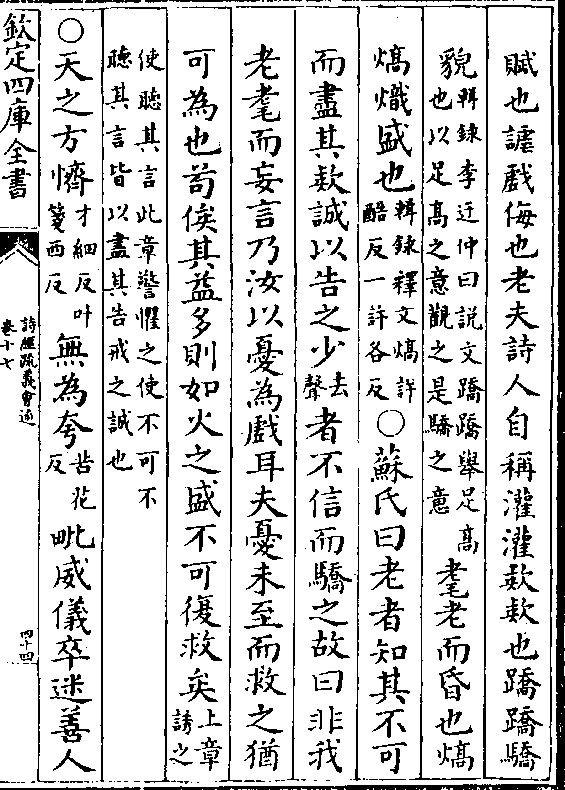 賦也謔戲侮也老夫詩人自稱灌灌欵欵也蹻蹻驕
貌輯錄李迂仲曰説文蹻蹻舉足高
也以足高之意觀之是驕之意耄老而昏也熇
熇熾盛也輯錄釋文熇許
酷反一許各反○蘇氏曰老者知其不可
而盡其欵誠以告之少去
聲者不信而驕之故曰非我
老耄而妄言乃汝以憂為戲耳夫憂未至而救之猶
可為也苟俟其益多則如火之盛不可復救矣上章
誘之
使聽其言此章警懼之使不可不
聽其言皆以盡其告戒之誠也
○天之方懠才細反叶
箋西反無為夸苦花
反毗威儀卒迷善人
欽定四庫全書
詩經疏義會通
卷十七
四十四